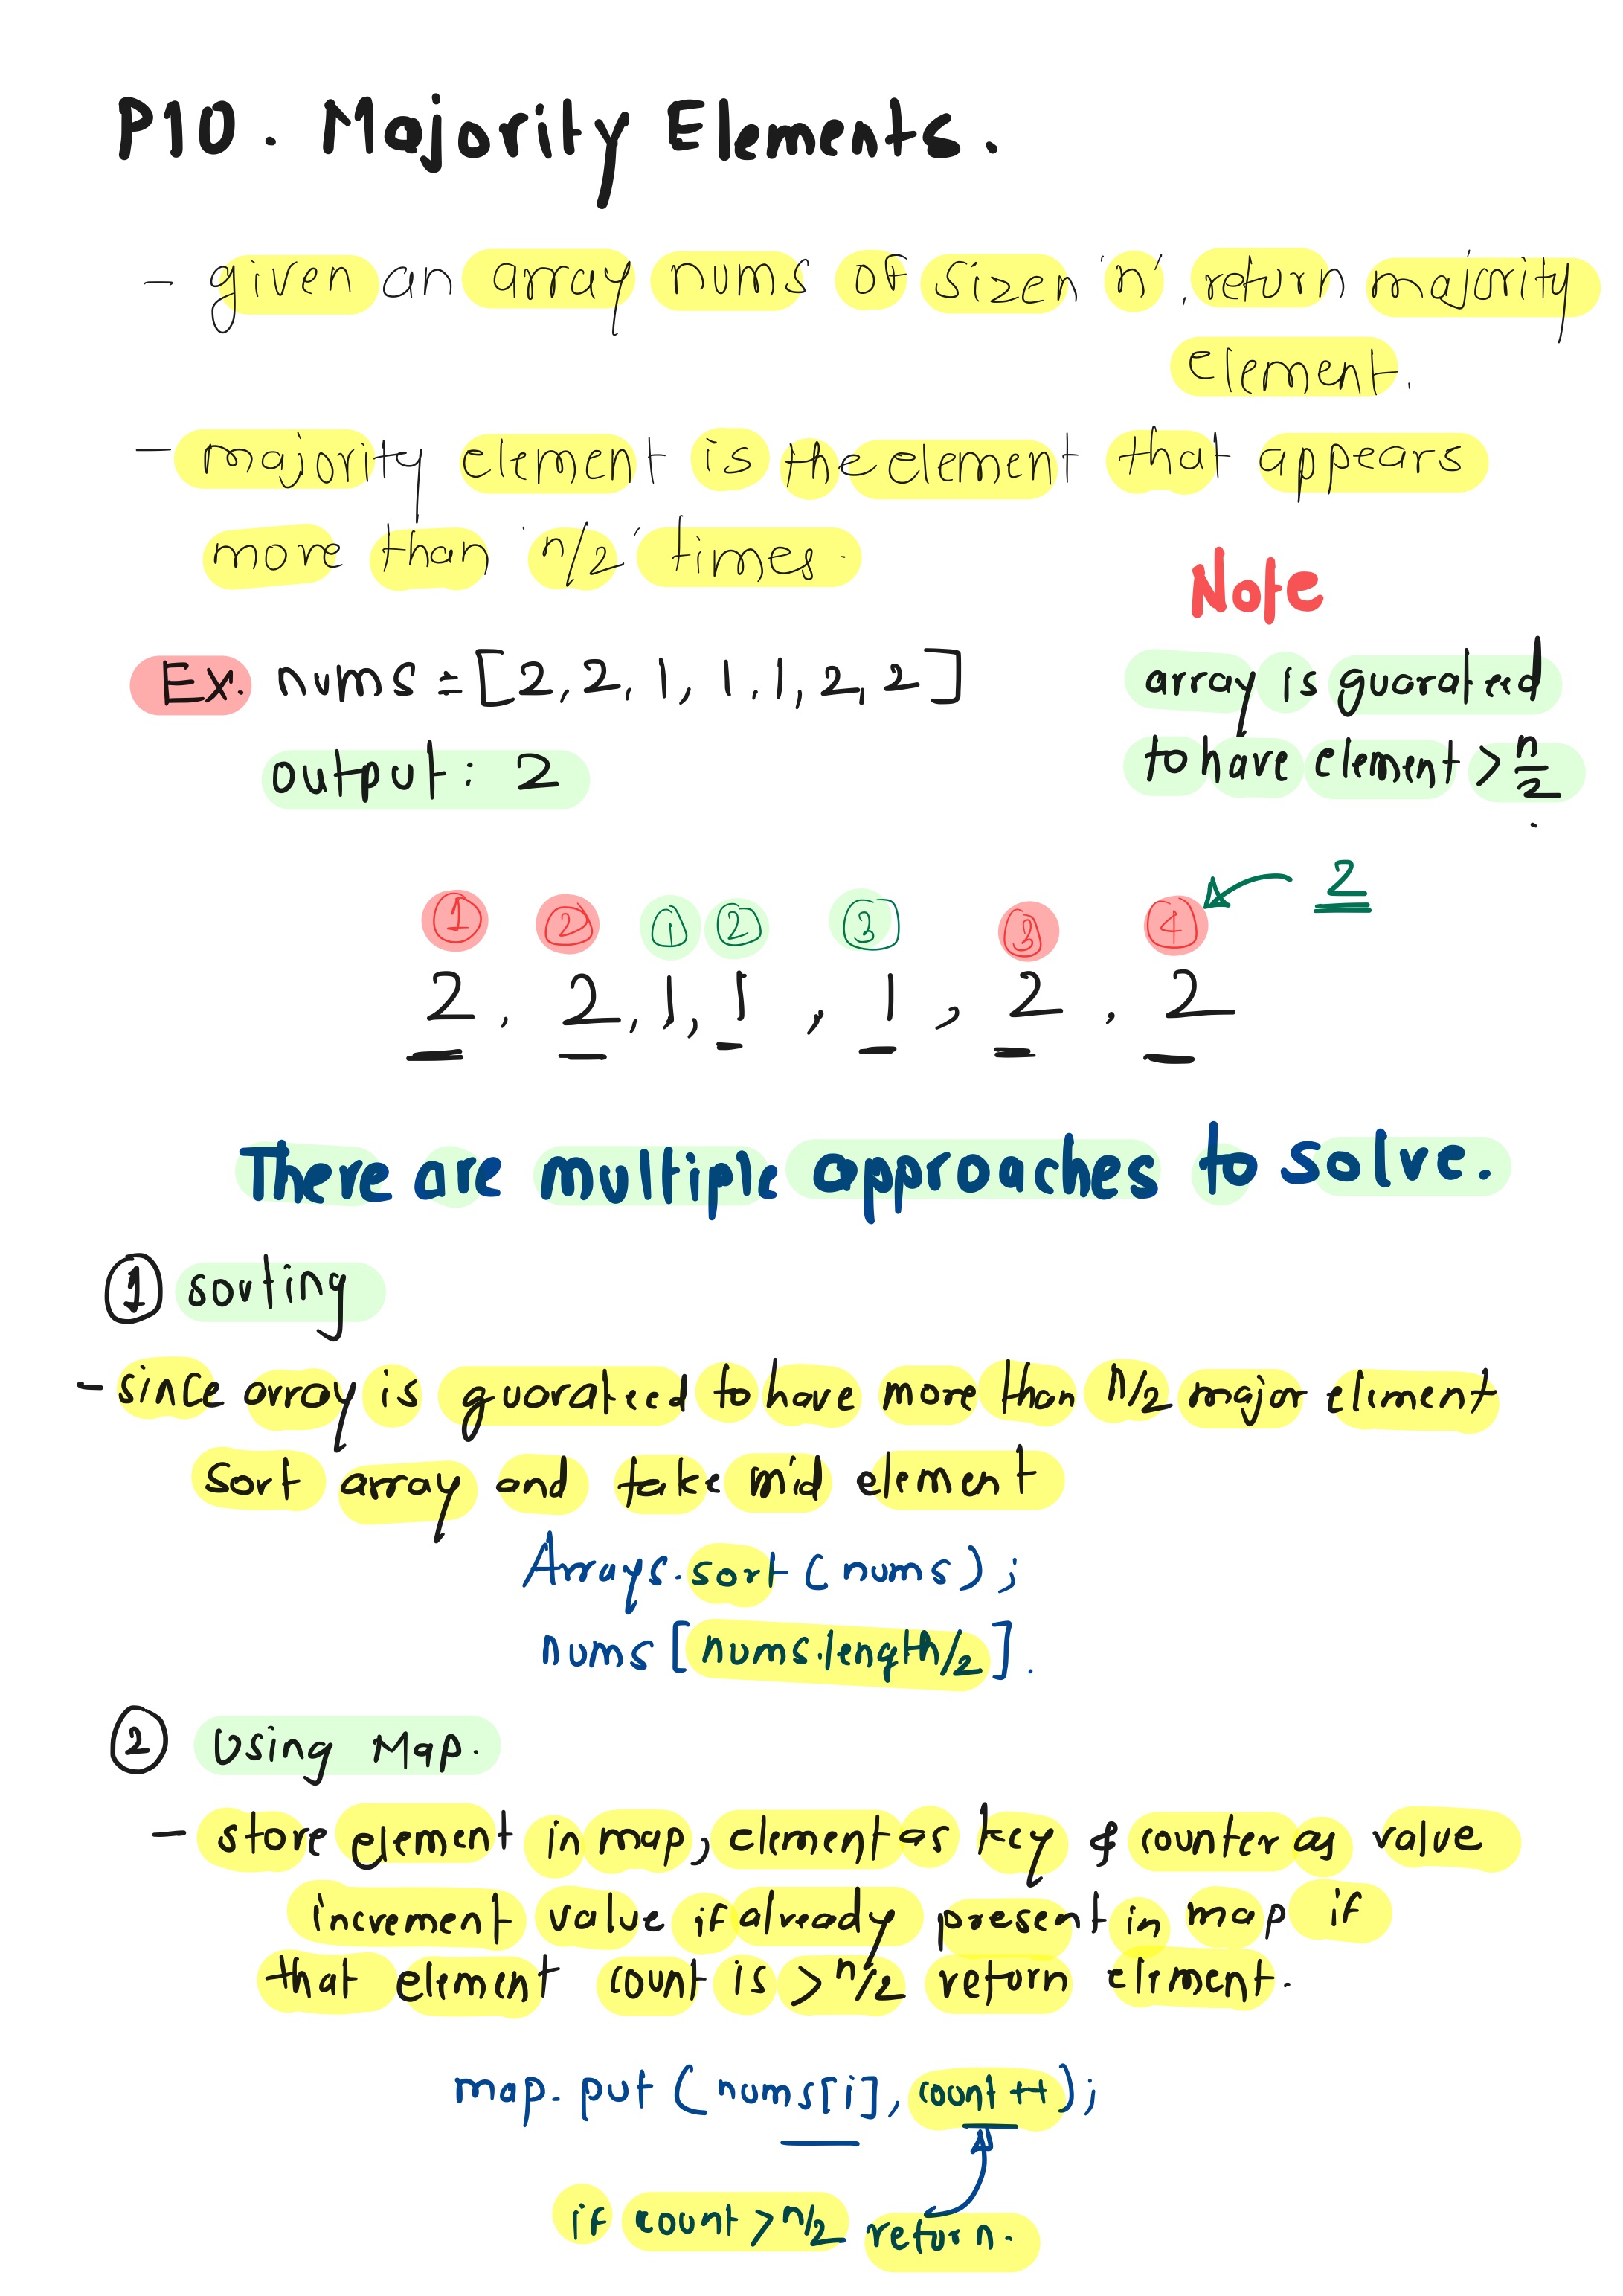 P10. Majority Elements.
- given an array nums of sizen 'n', return majority
element.
- majority element is the element that appears
more than 'n/2' times.
Note
Ex. nums = [2, 2, 1, 1, 1, 2, 2]
array is guarateed
output: 2
to have element > n/2.
2
1 2 1 2 3 3 4
2, 2, 1, 1, 1, 2, 2
There are multiple approaches to solve.
1 sorting
- since array is guarateed to have more than n/2 major element
sort array and take mid element
Arrays.sort(nums);
nums[nums.length/2].
2 Using Map.
- store element in map, element as key & counter as value
increment value if already present in map if
that element count is > n/2 return element.
map.put(nums[i], count++);
if count > n/2 return.